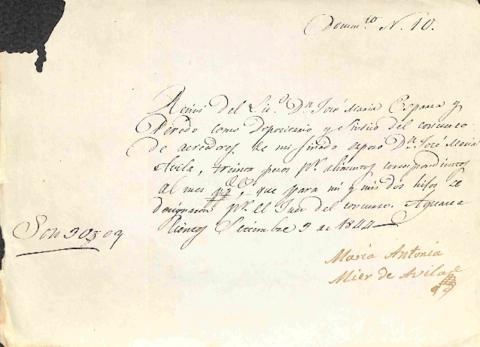 Docum.to N. 10.
Recivi del Lic.o D.n José María Esparza y
Peredo como Depositario y Sindico del concurso
de acredores, de mi finado esposo D.n José María
Avila, treinta pesos p.r alimentos correspondientes
al mes que para mi y mis dos hijos se
designaron p.r el Juez del concurso. Aguasca
lientes Diciembre 2 de 1844
Son
María Antonia
Mier de Avila